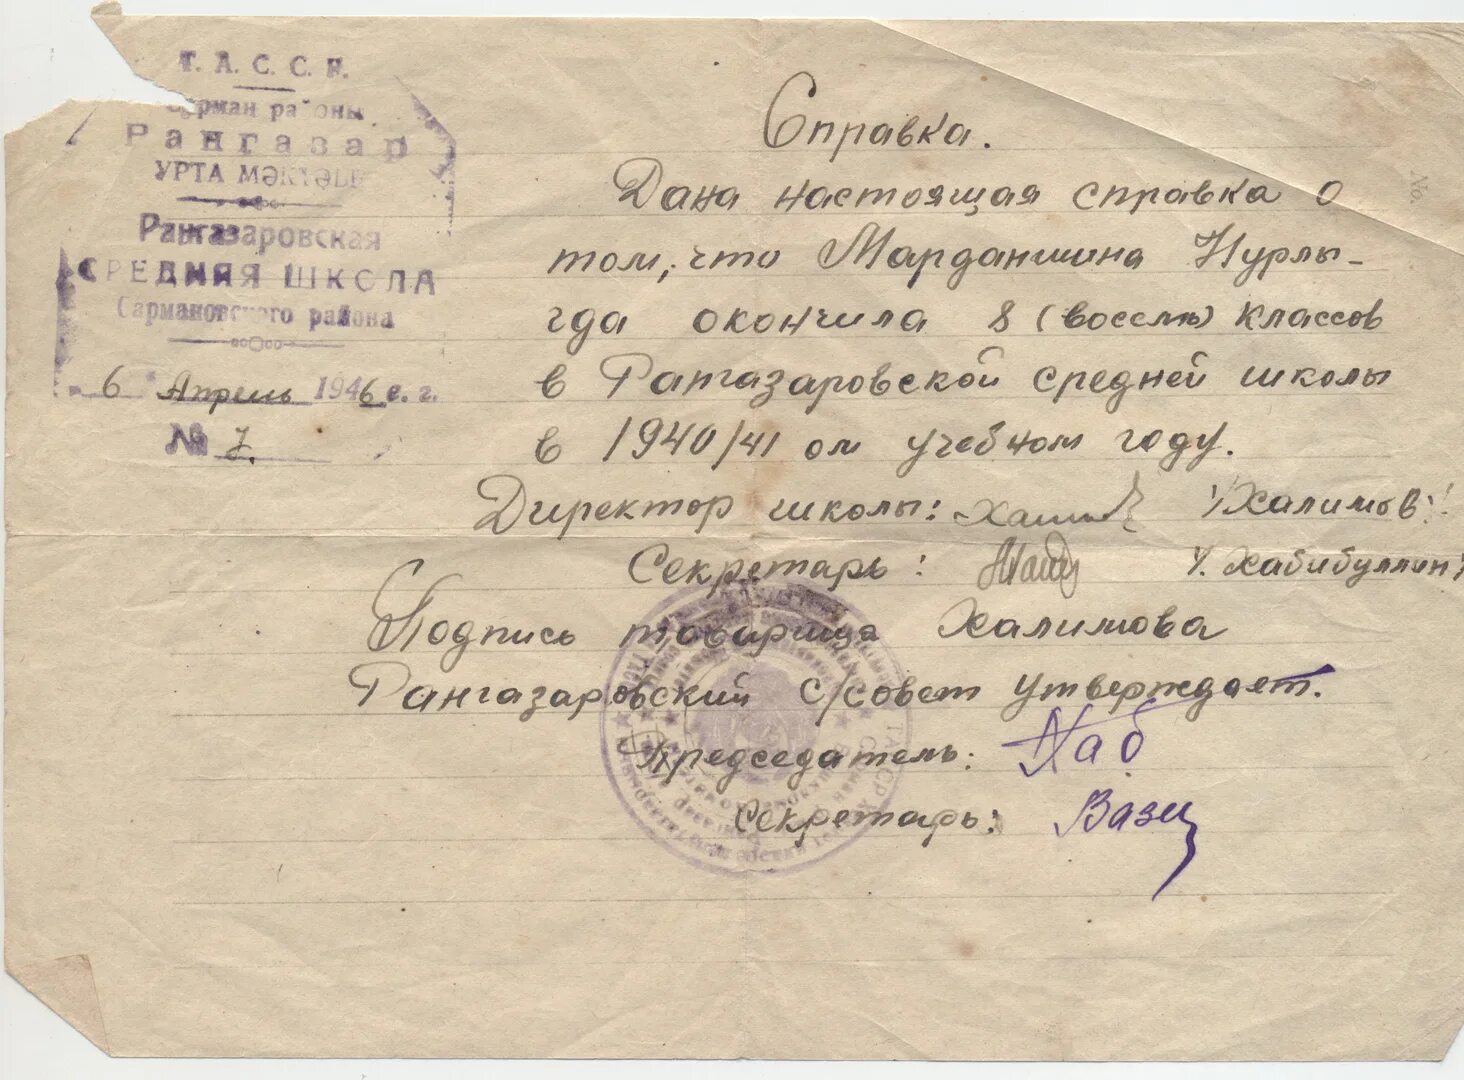 Т. А. С. С. Р.
Сарман районы
Рангазар
УРТА МӘКТӘБЕ
Рангазаровская
СРЕДНЯЯ ШКОЛА
Сармановского района
6 Апрель 1946 г.
№ 7.
Справка.
Дана настоящая справка о
том, что Марданшина Нурлы-
гда окончила 8 (восемь) классов
в Рангазаровской средней школы
в 1940/41 ом учебном году.
Директор школы: /Халимов/
Секретарь: /. Хабибуллин/
Подпись товарища Халимова
Рангазаровский с/совет утверждает.
Председатель: Хаб
Секретарь: Вази
№